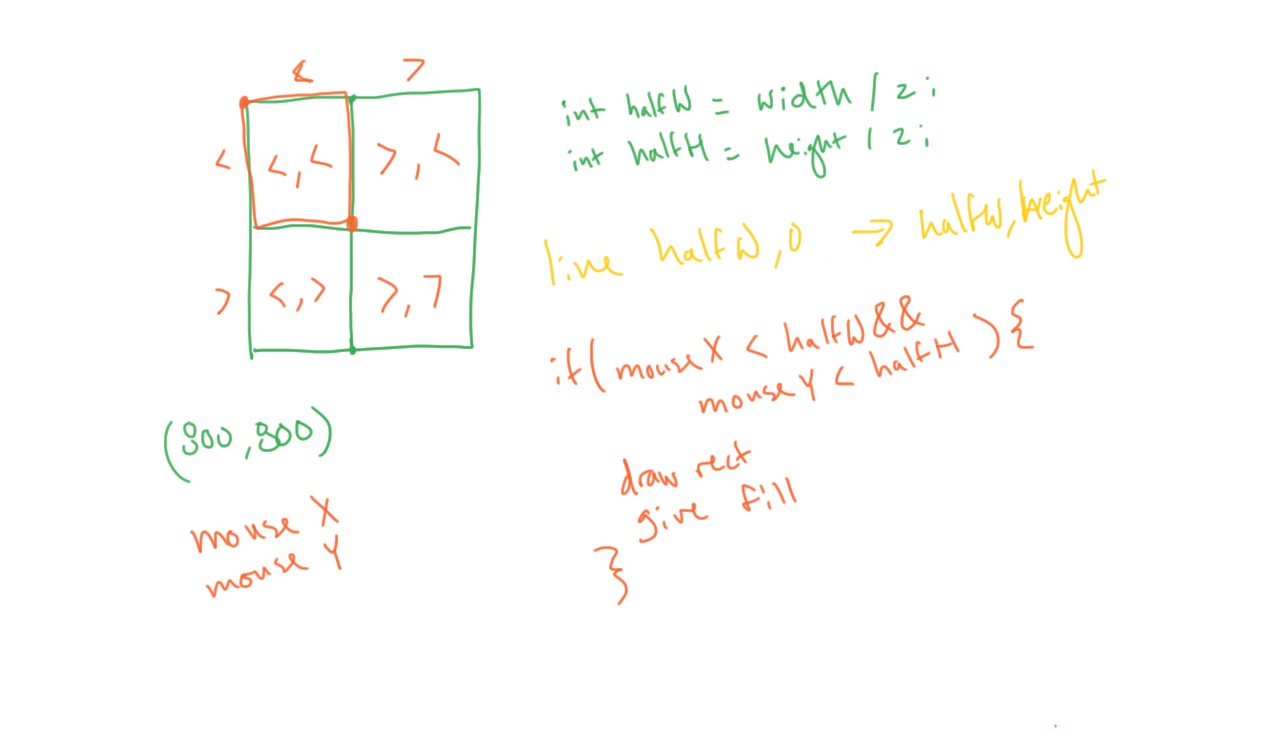 < >
< <,< >,<
> <,> >,>
(800,800)
mouse X
mouse Y
int halfW = width / 2;
int halfH = height / 2;
line halfW,0 → halfW,height
if( mouseX < halfW &&
mouseY < halfH ) {
draw rect
give fill
}